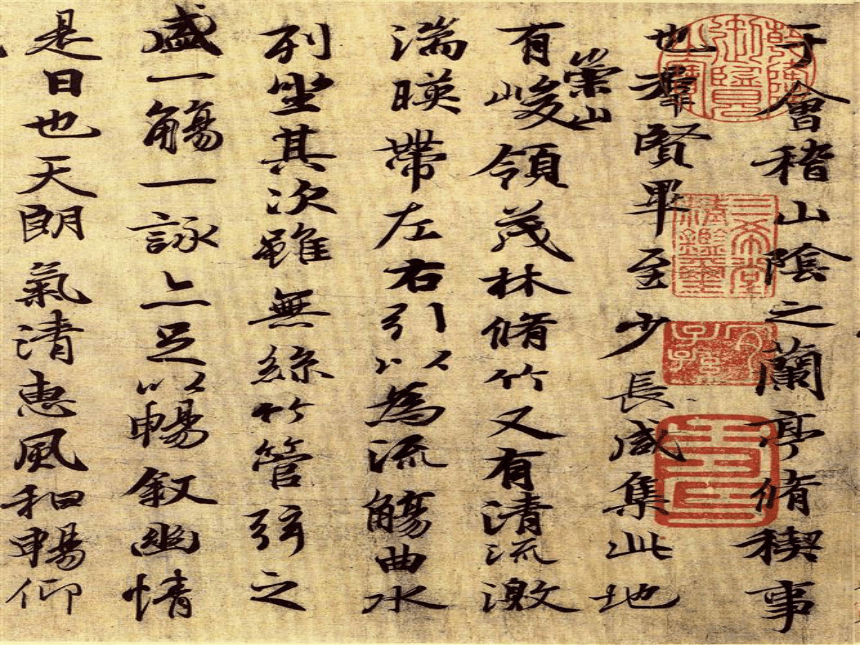 于會稽山陰之蘭亭脩稧事
也羣賢畢至少長咸集此地
有崇山峻領茂林脩竹又有清流激
湍暎帶左右引以為流觴曲水
列坐其次雖無絲竹管弦之
盛一觴一詠亦足以暢叙幽情
是日也天朗氣清惠風和暢仰
乾隆御覽之寶
三希堂精鑑璽
宜子孫